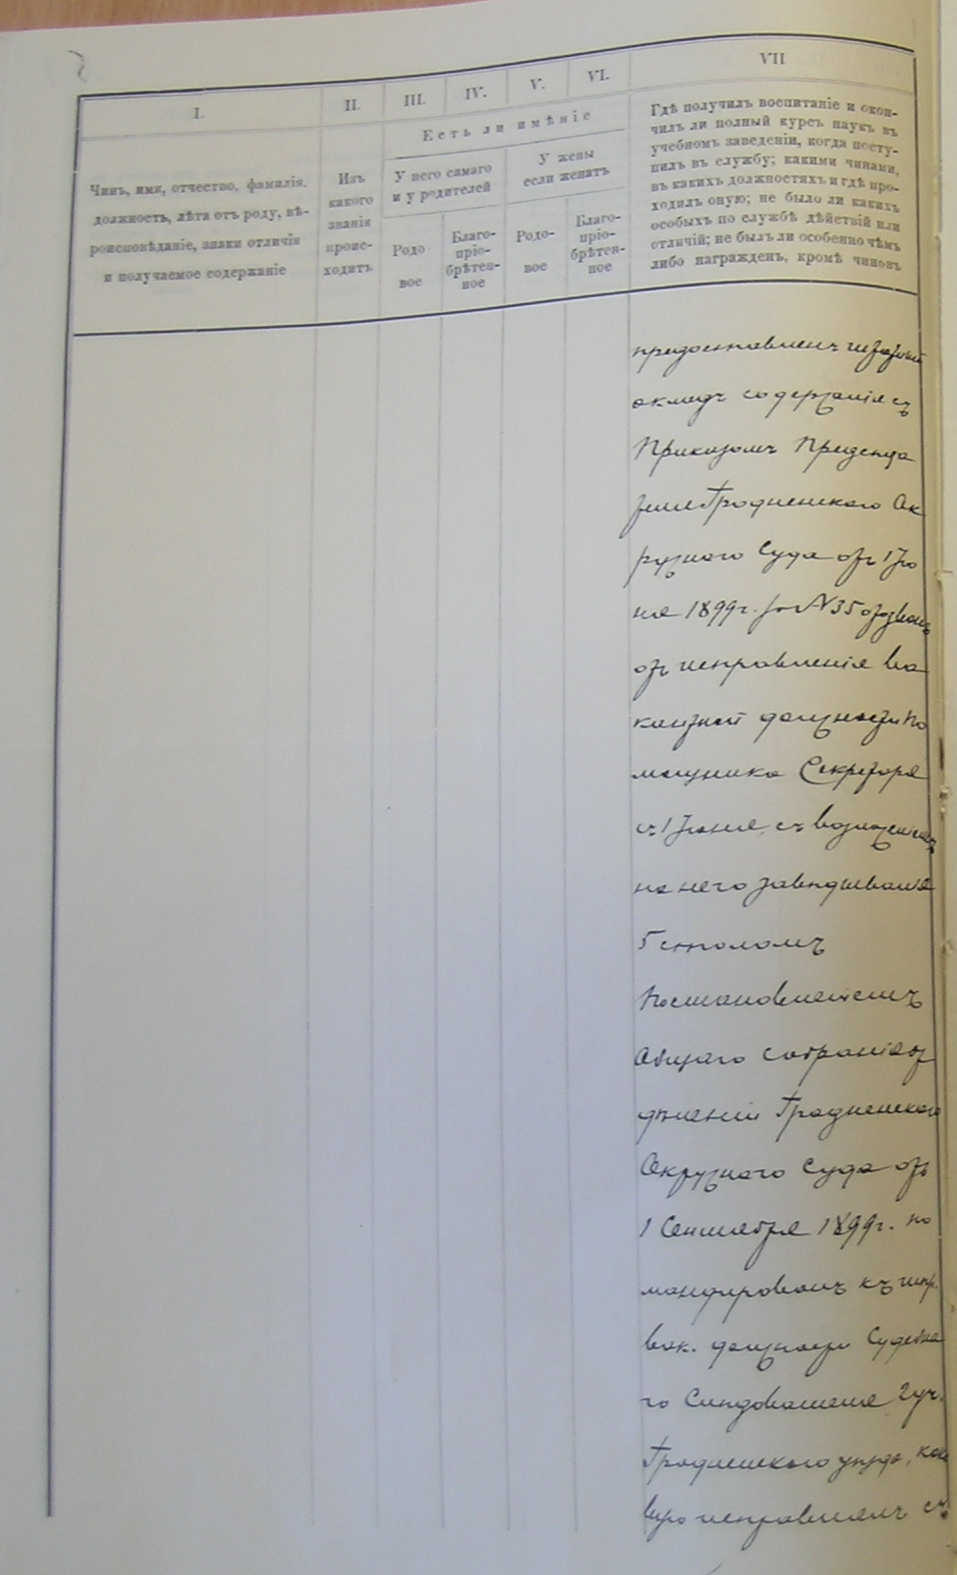 I.
II.
III.
IV.
V.
VI.
VII
Есть ли имѣніе
У него самаго
и у родителей
У жены
если женатъ
Чинъ, имя, отчество, фамилія,
должность, лѣта отъ роду, вѣ-
роисповѣданіе, знаки отличія
и получаемое содержаніе
Изъ
какого
званія
проис-
ходитъ
Родо
вое
Благо-
пріо-
брѣтен-
ное
Родо-
вое
Благо-
пріо-
брѣтен-
ное
Гдѣ получилъ воспитаніе и окон-
чилъ ли полный курсъ наукъ въ
учебномъ заведеніи, когда посту-
пилъ въ службу; какими чинами,
въ какихъ должностяхъ и гдѣ про-
ходилъ оную; не было ли какихъ
особыхъ по службѣ дѣйствій или
отличій; не былъ ли особенно чѣмъ
либо награжденъ, кромѣ чиновъ
предоставленъ
окладъ содержанія съ
Приказомъ Предсѣда
теля Гродненскаго Ок
ружнаго Суда отъ 1 Iю
ня 1899 г. за № 35 отозванъ
отъ исправленія ва
кантной должности По
мощника Секретаря
съ 1 Iюня, съ возложеніемъ
на него завѣдыванія
5 столомъ
Постановленіемъ
Общаго собранія от
дѣленій Гродненскаго
Окружнаго Суда отъ
1 Сентября 1899 г. ко
мандированъ къ испр.
вак. должности Судебна
го Слѣдователя 2 уч.
Гродненскаго уѣзда, како
вую исправлялъ съ